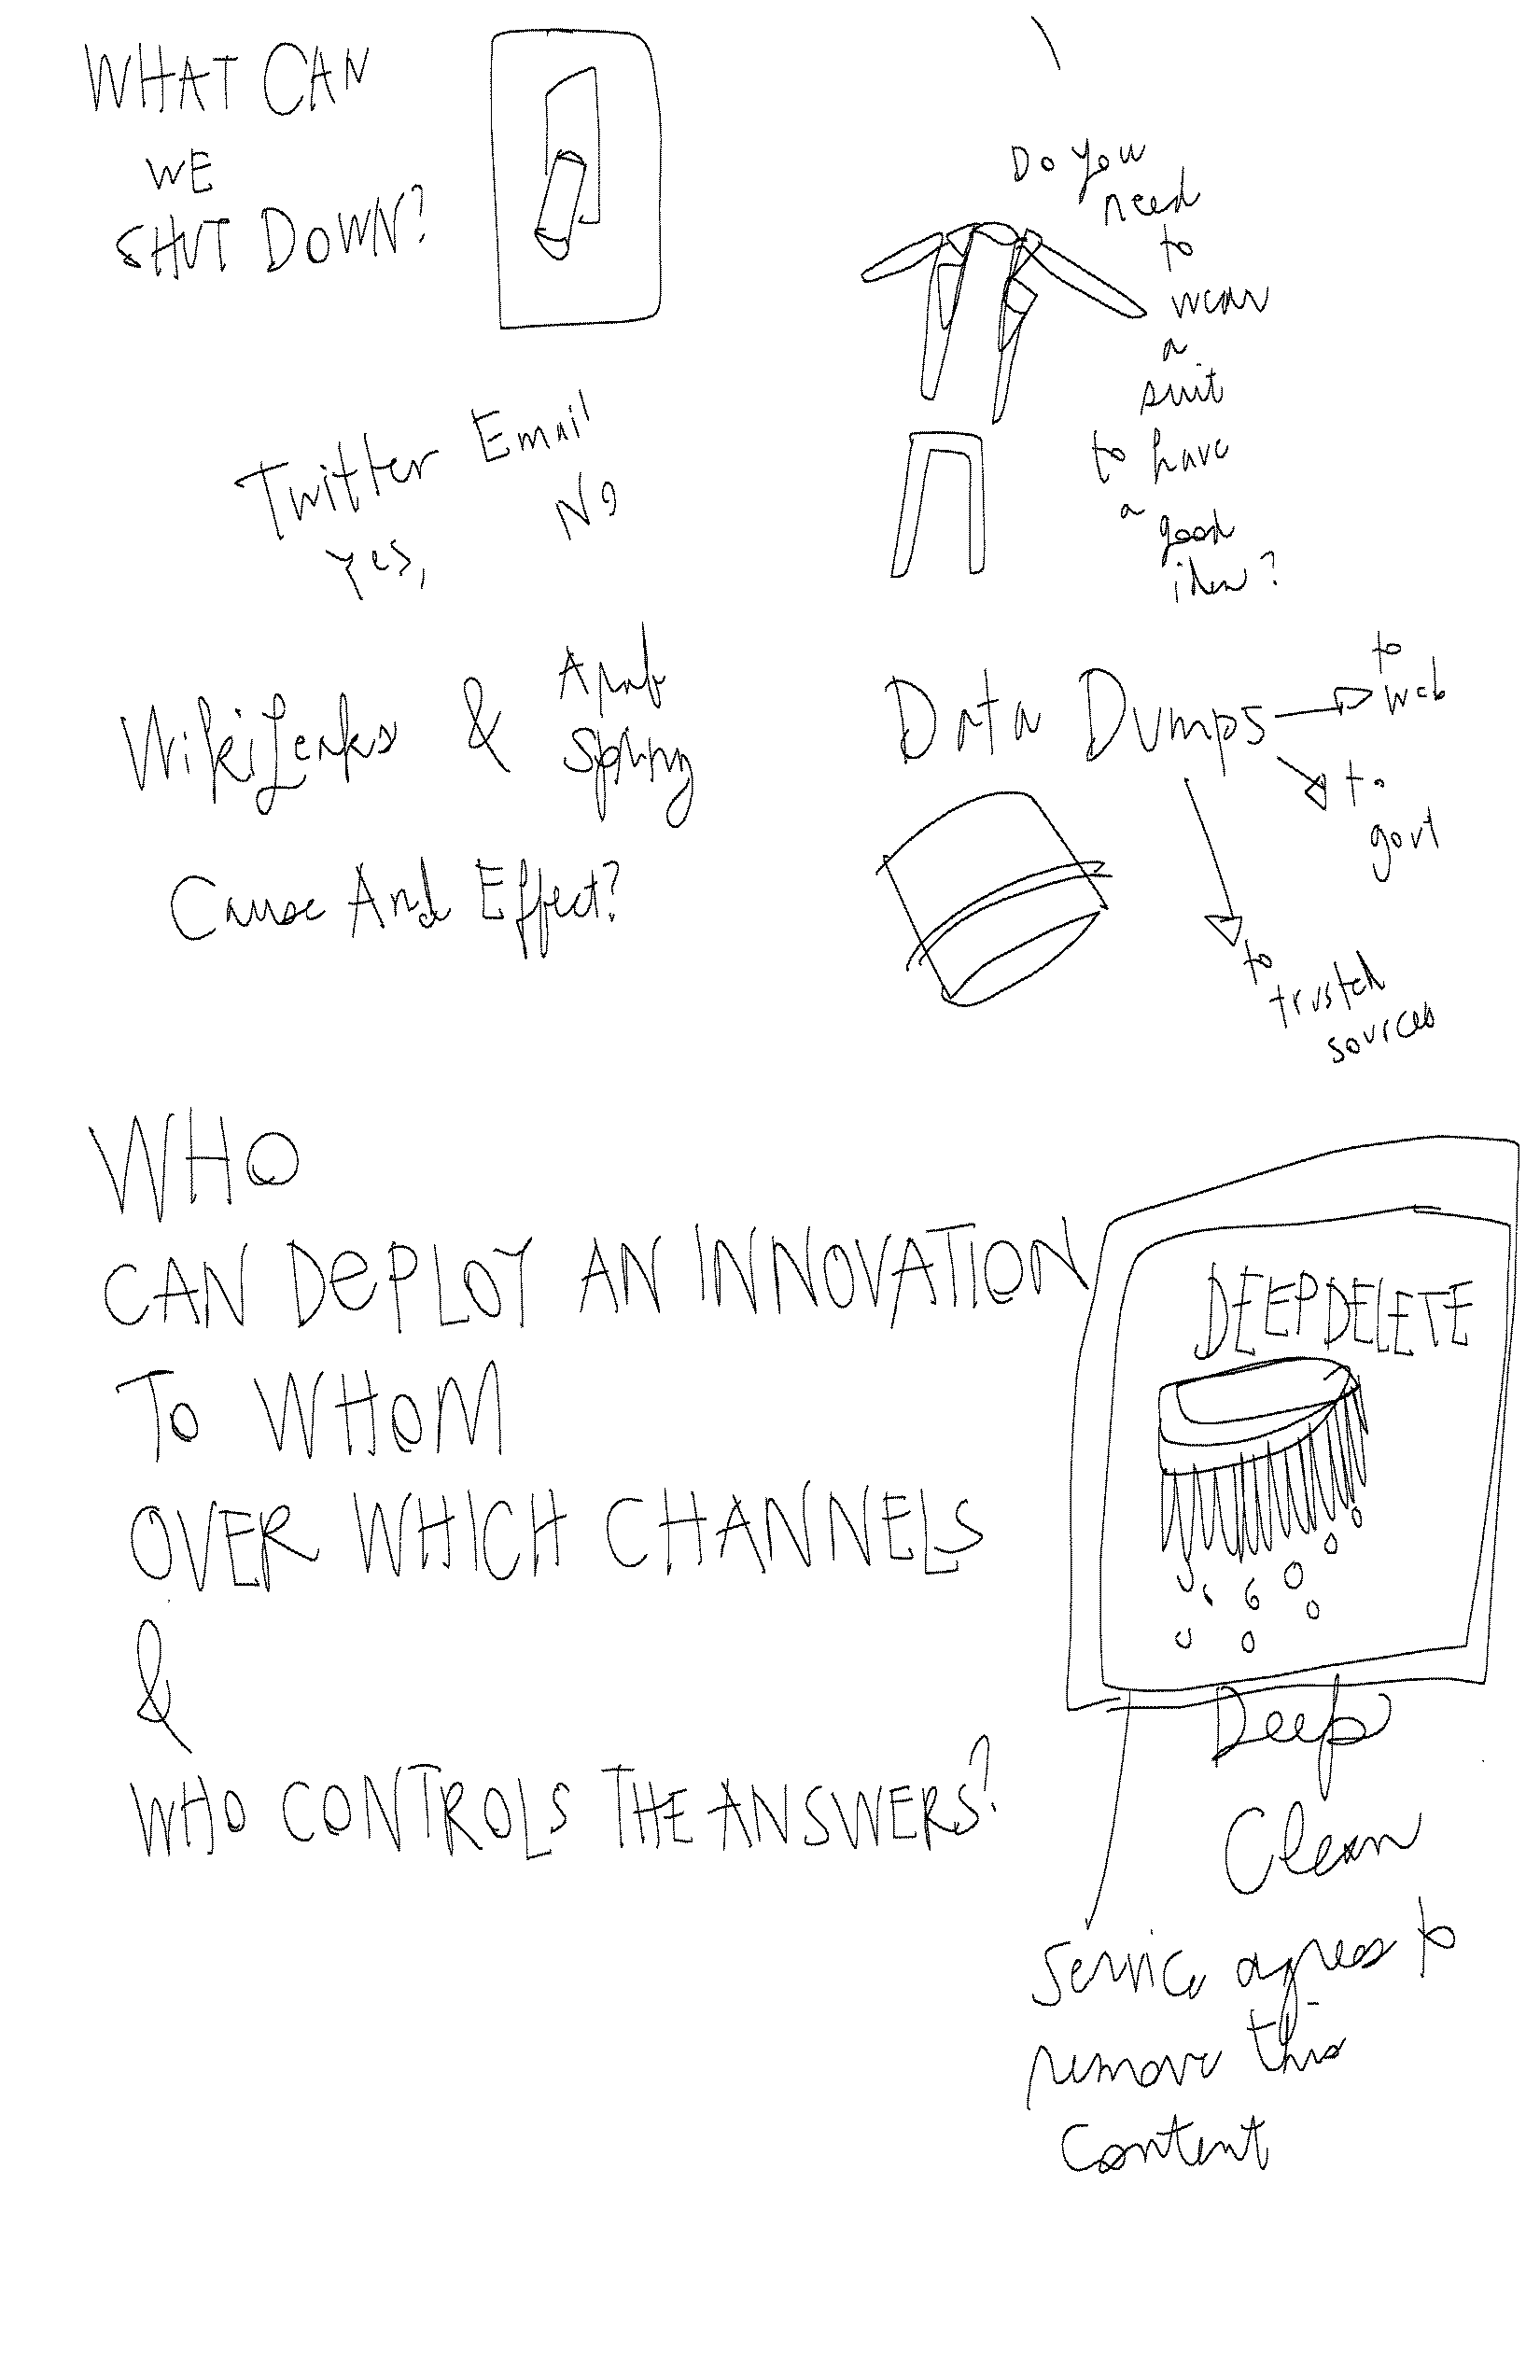 WHAT CAN
WE
SHUT DOWN?
Twitter Email
Yes, No
Do you
need
to
wear
a
suit
to have
a
good
idea?
WikiLeaks & Arab
Spring
Cause And Effect?
Data Dumps
to
web
to
govt
to
trusted
sources
WHO
CAN DePLOY AN INNOVATION
To WHOM
OVER WHICH CHANNELS
&
WHO CONTROLS THE ANSWERS?
DEEP DELETE
Deep
Clean
Service agrees to
remove this
content